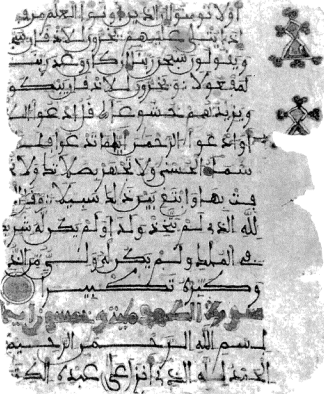 او لا تومنوا ان الذين اوتوا العلم من
اذا يتلى عليهم يخرون للاذقان
ويقولون سبحن ربنا ان كان وعد ربنا
لمفعولا ويخرون للاذقان يبكو
ويزيدهم خشوعا قل ادعوا
او ادعوا الرحمن ايا ما تدعوا فله
سما الحسنى ولا تجهر بصلاتك ولا
فت بها وابتغ بين ذلك سبيلا وقل
لله الذي لم يتخذ ولدا ولم يكن له شريك
في الملك ولم يكن له ولي من الذل
وكبره تكبيرا
سورة الكهف
بسم الله الرحمن الرحيم
الحمد لله الذي انزل على عبده الكتب